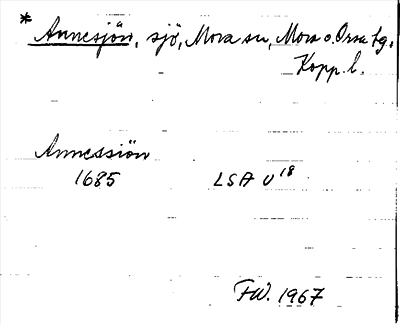 * Annesjön, sjö, Mora sn, Mora o. Orsa tg.
Kopp. l.
Annessiön
1685 LSA U18
FW. 1967